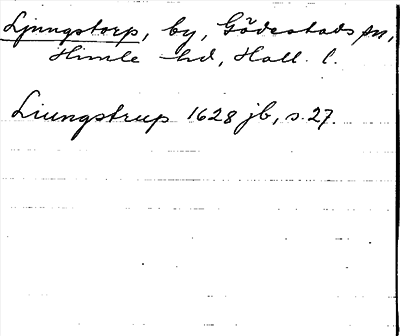 Ljungstorp, by, Gödestads sn,
Himle hd, Hall. l.
Liungstrup 1628 jb, s. 27.